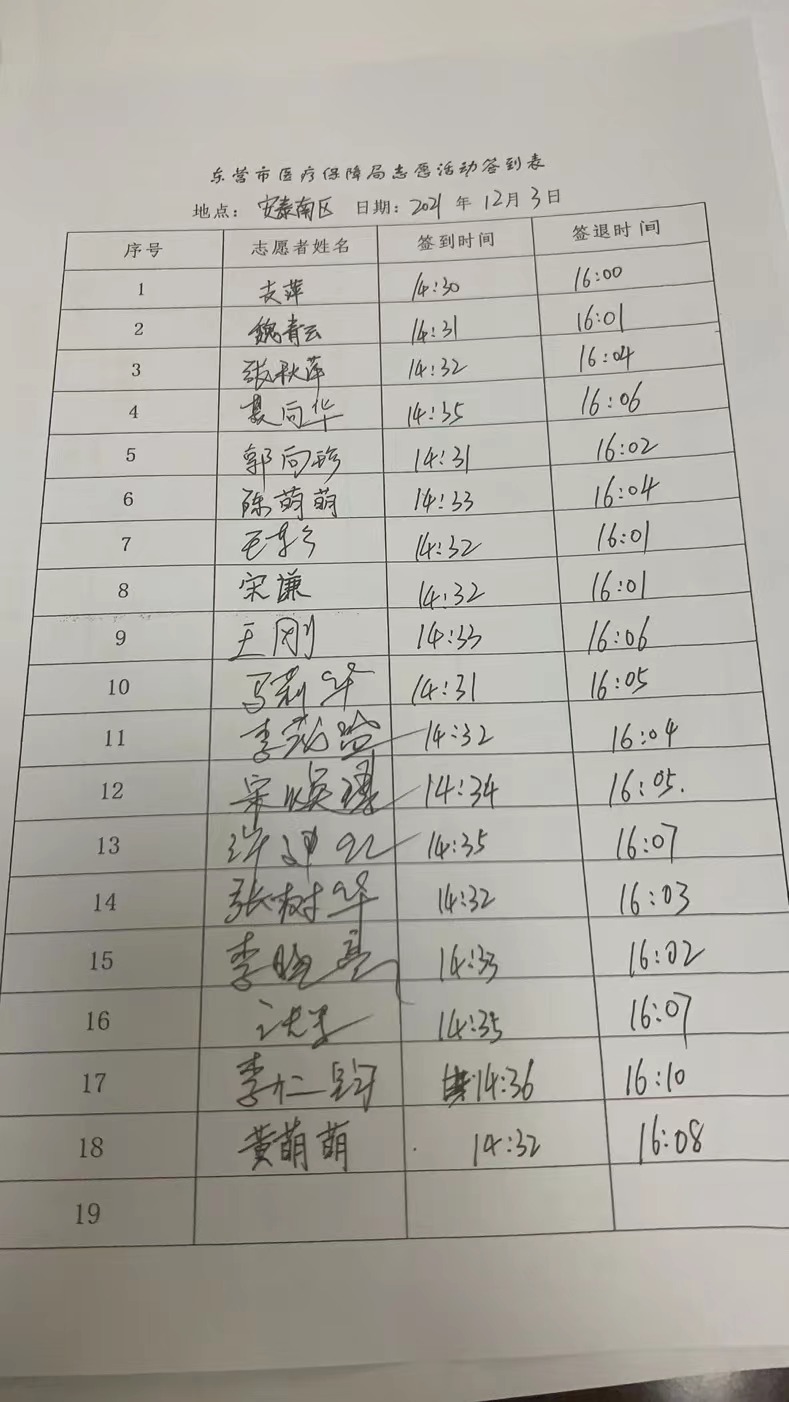 东营市医疗保障局志愿活动签到表
地点：安泰南区 日期：2021 年 12月 3日
序号 志愿者姓名 签到时间 签退时间
1 支萍 14:30 16:00
2 魏青云 14:31 16:01
3 张秋萍 14:32 16:04
4 聂向华 14:35 16:06
5 郭向珍 14:31 16:02
6 陈萌萌 14:33 16:04
7 14:32 16:01
8 宋谦 14:32 16:01
9 王刚 14:33 16:06
10 马莉华 14:31 16:05
11 李 14:32 16:04
12 宋焕 14:34 16:05.
13 许 14:35 16:07
14 张树华 14:32 16:03
15 李晓亮 14:33 16:02
16 14:35 16:07
17 李仁 14:36 16:10
18 黄萌萌 14:32 16:08
19